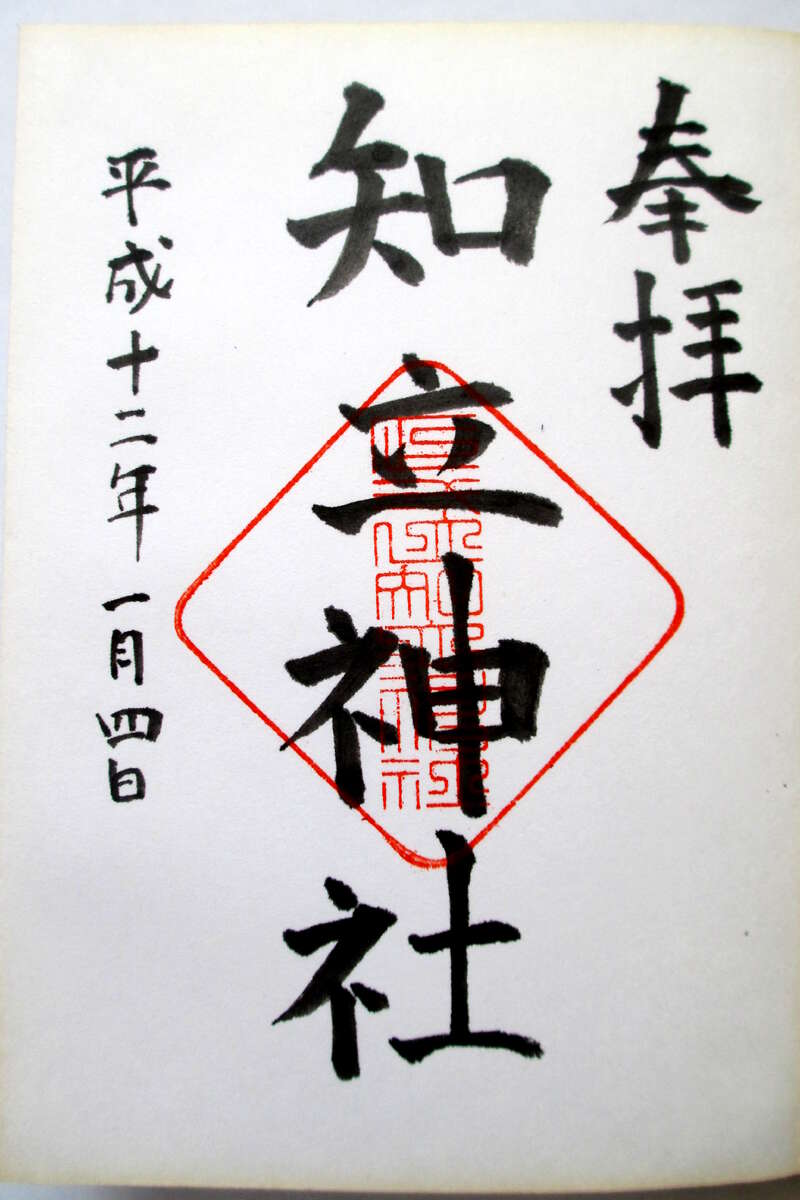 奉拝
知立神社
平成十二年一月四日